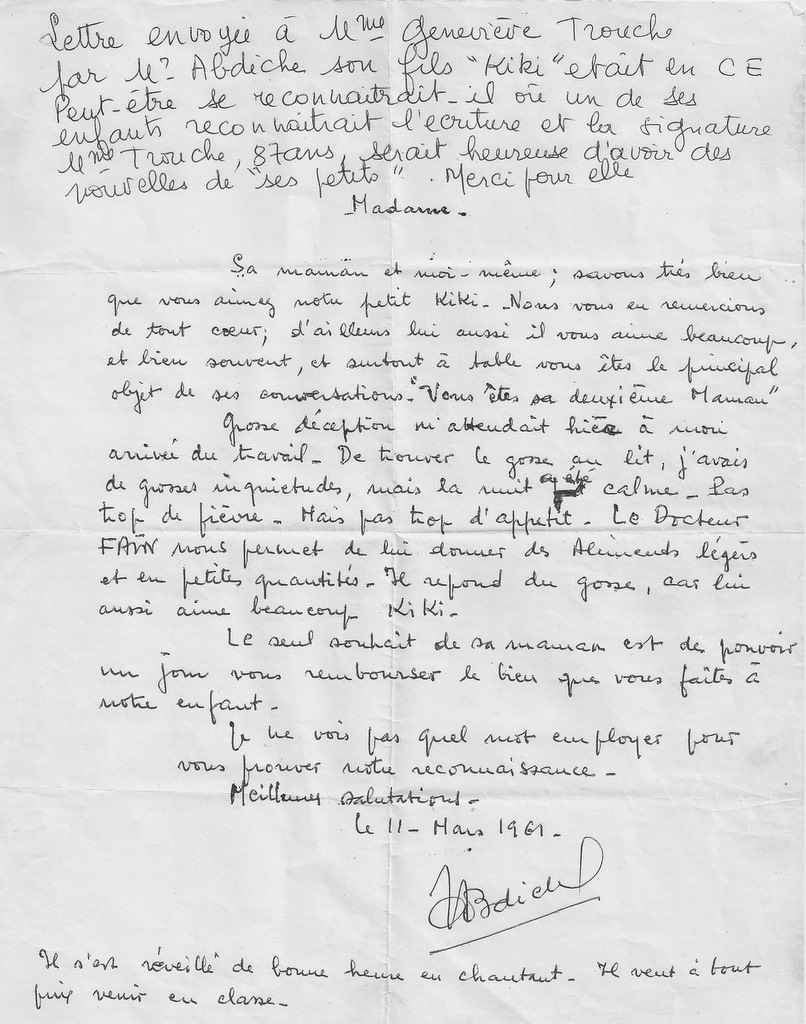 Lettre envoyée à Mme Geneviève Trouche
par Mr Abdiche son fils "Kiki" etait en CE
Peut-être se reconnaitrait-il où un de ses
enfants reconnaitrait l'ecriture et la signature
Mme Trouche, 87ans, serait heureuse d'avoir des
nouvelles de "ses petits". Merci pour elle
Madame.
Sa maman et moi-même; savons très bien
que vous aimez notre petit Kiki. Nous vous en remercions
de tout cœur; d'ailleurs lui aussi il vous aime beaucoup,
et bien souvent, et surtout à table vous êtes le principal
objet de ses conversations. "Vous êtes sa deuxième Maman"
Grosse déception m'attendait hier à mon
arrivée du travail. De trouver le gosse au lit, j'avais
de grosses inquietudes, mais la nuit a été calme. Pas
trop de fièvre. Mais pas trop d'appetit. Le Docteur
FAÏN nous permet de lui donner des Aliments légers
et en petites quantités. Il repond du gosse, car lui
aussi aime beaucoup KiKi.
Le seul souhait de sa maman est de pouvoir
un jour vous rembourser le bien que vous faîtes à
notre enfant.
Je ne vois pas quel mot employer pour
vous prouver notre reconnaissance.
Meilleures salutations.
Le 11 - Mars 1961.
Abdiche
Il s'est réveillé de bonne heure en chantant. Il veut à tout
prix venir en classe.